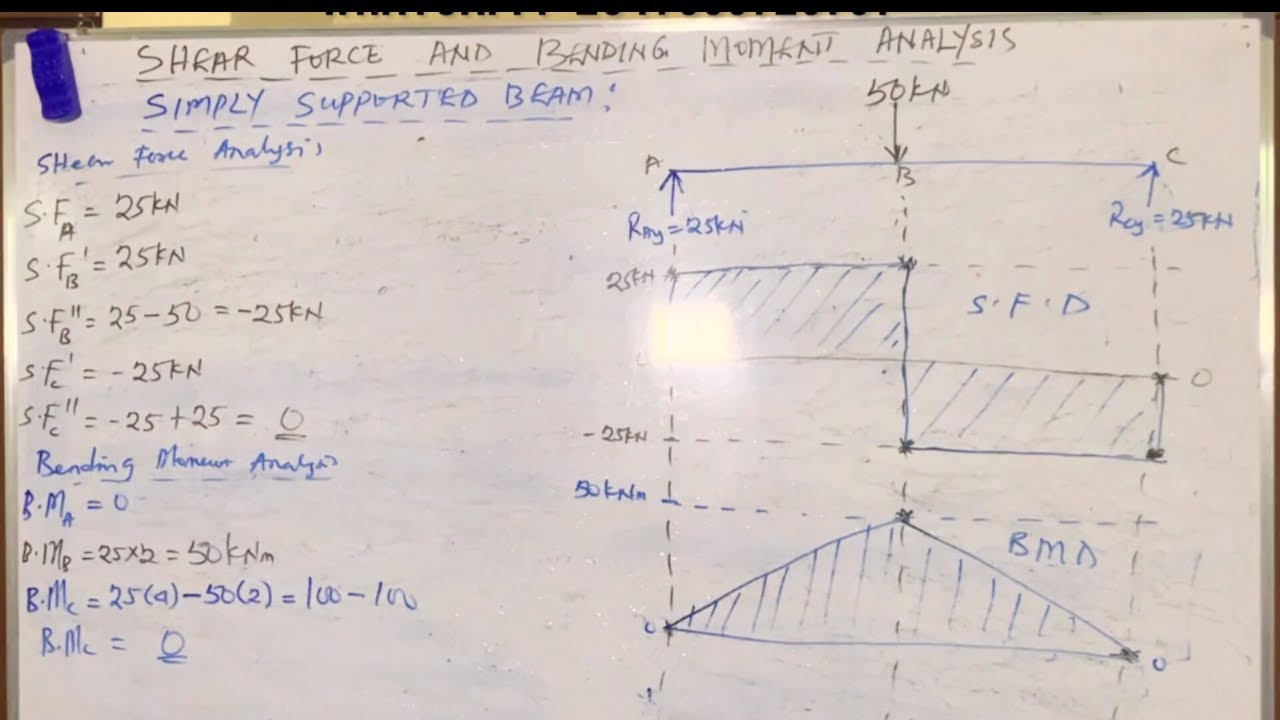 SHEAR FORCE AND BENDING MOMENT ANALYSIS
SIMPLY SUPPORTED BEAM:
Shear Force Analysis
S.F_A = 25KN
S.F_B' = 25KN
S.F_B'' = 25-50 = -25KN
S.F_C' = -25KN
S.F_C'' = -25+25 = 0
Bending Moment Analysis
B.M_A = 0
B.M_B = 25×2 = 50KNm
B.M_C = 25(4)-50(2) = 100-100
B.M_C = 0
50KN
A
B
C
R_Ay = 25KN
R_Cy = 25KN
25KN
S.F.D
0
-25KN
50KNm
BMD
0
0